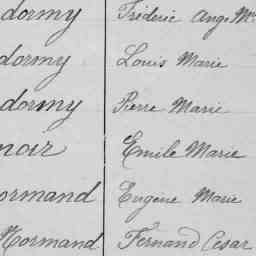 dormy Fréderic Ange Mie
dormy Louis Marie
dormy Pierre Marie
noir Emile Marie
ormand Eugène Marie
Normand Fernand Cesar